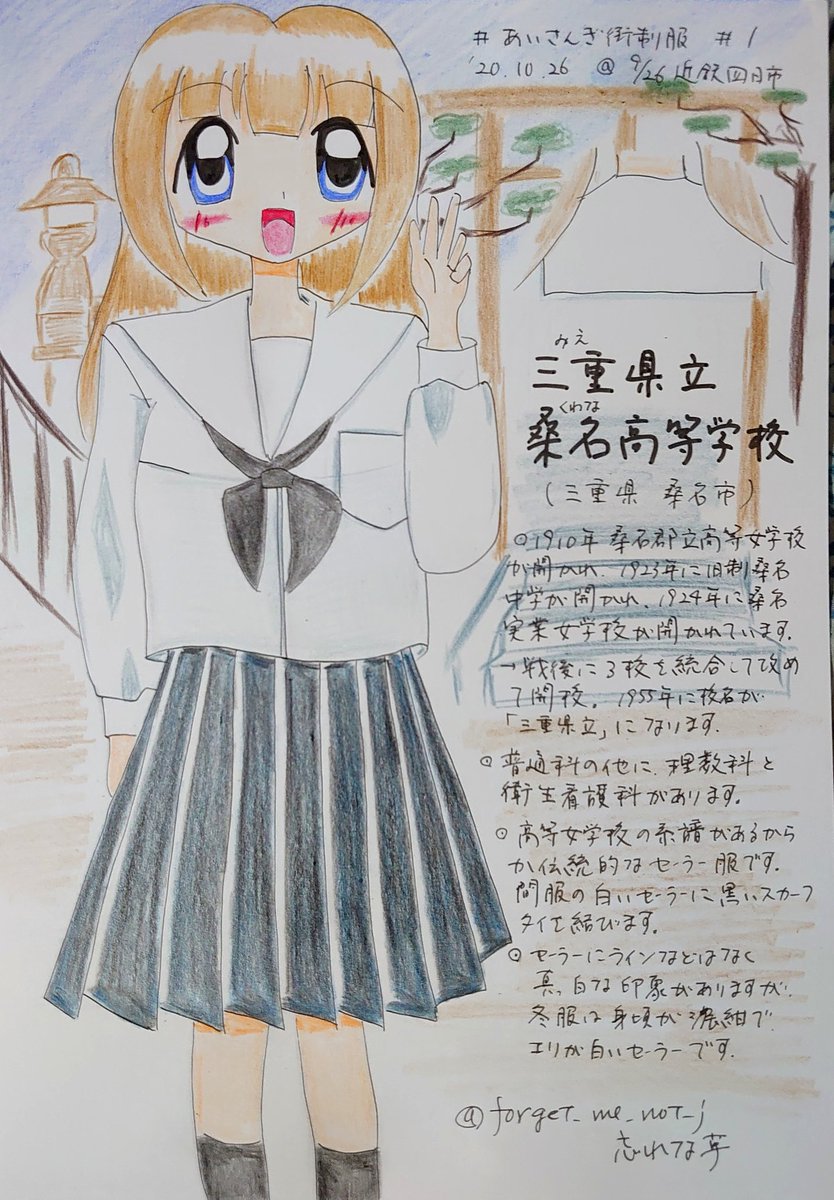 # あいさんぎ街制服 #1
'20.10.26 @ 9/26 近鉄四日市
みえ
三重県立
くわな
桑名高等学校
(三重県 桑名市)
○1910年桑名郡立高等女学校
が開かれ、1923年に旧制桑名
中学が開かれ、1924年に桑名
実業女学校が開かれています。
→戦後に3校を統合して改め
て開校。1955年に校名が
「三重県立」になります。
○普通科の他に、理数科と
衛生看護科があります。
○高等女学校の系譜があるから
か伝統的なセーラー服です。
間服の白いセーラーに黒いスカーフ
タイを結びます。
○セーラーにラインなどはなく
真っ白な印象がありますが、
冬服は身頃が濃紺で
エリが白いセーラーです。
@forget_me_not_j
忘れな草